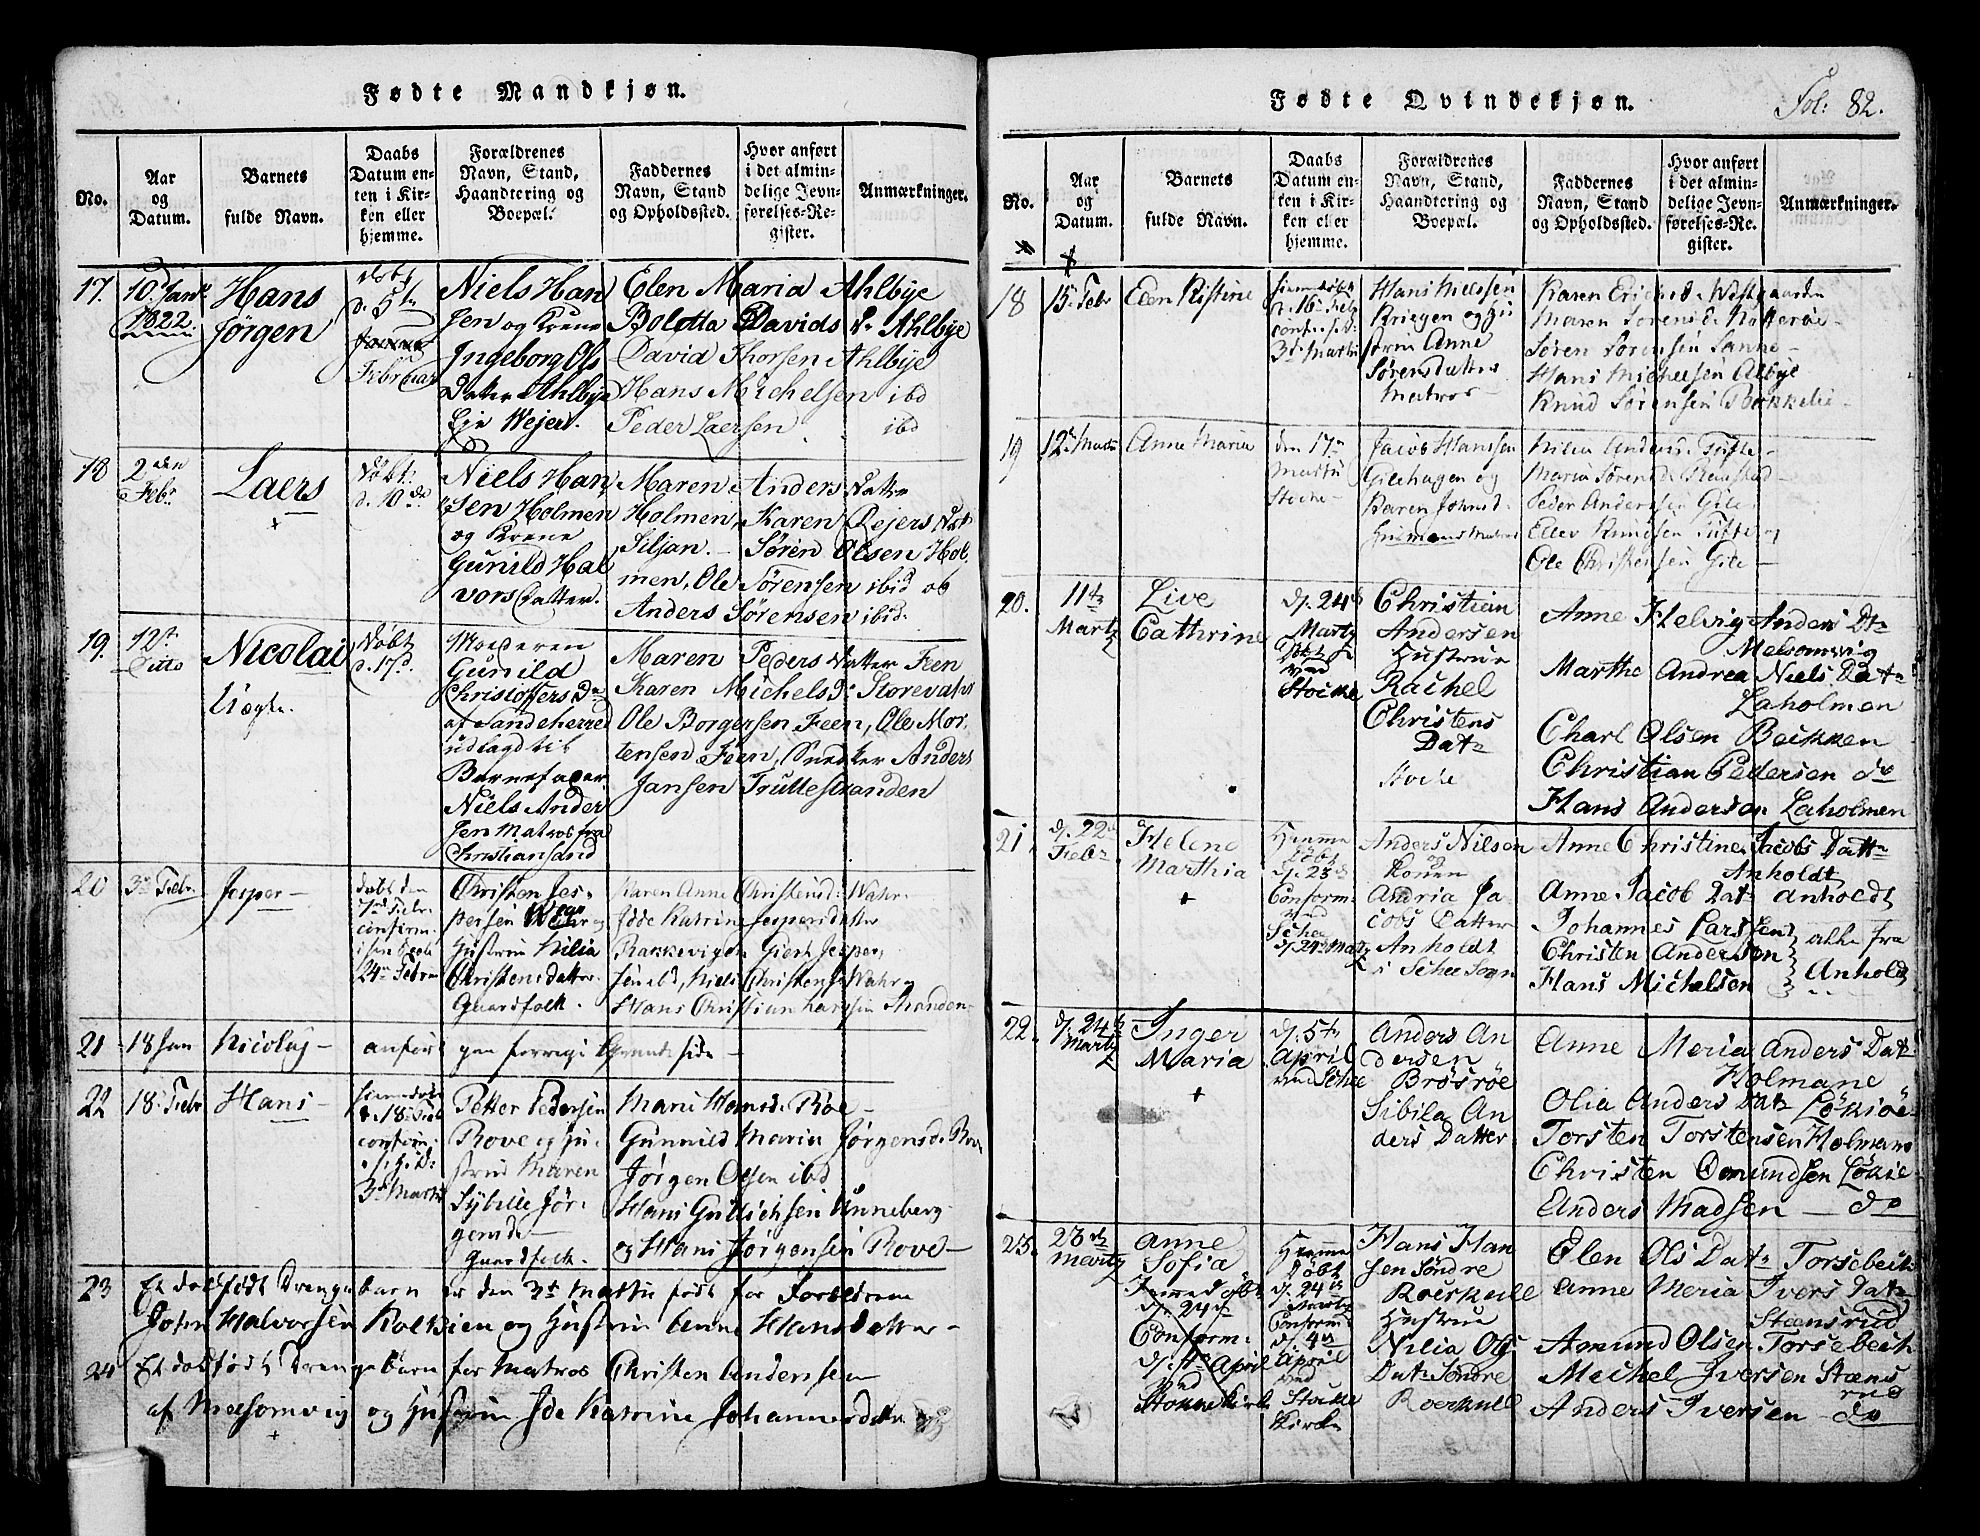 Fødte Mandkjøn.
No.
Aar
og
Datum.
Barnets
fulde Navn.
Daabs
Datum en-
ten i Kir-
ken eller
hjemme.
Forældrenes
Navn, Stand,
Haandtering og
Boepæl.
Faddernes
Navn, Stand
og Opholdssted.
Hvor anført
i det almin-
delige Jevn-
førelses-Re-
gister.
Anmærkninger.
17.
1822.
Hans
Jørgen
døbt
Februar
Niels Han
sen og Kone
Ingeborg Ols
Datter Ahlbye
Eje Wejer.
Elen Maria Ahlbye
Bolotta Davids Dr Ahlbye
David Thorsen Ahlbye
Hans Michelsen ibd
Peder Laersen ibd
18
2den
Febr
Laers
Døbt
d. 10de
Niels Han
sen Holmen
og Kone
Gunild Hal
vors Datter.
Maren Anders Datter
Holmen, Karen Rejers Dat
Siljan. Søren Olsen Hol
men, Ole Sørensen ibid og
Anders Sørensen ibid.
19.
12te
Ditto
Nicolai
Uægte.
Døbt
d. 17d.
Moderen
Gunild
Christoffers Dr
af Sandeherred
udlagd til
Barnefader
Niels Ander
sen Matros fra
Christiansand
Maren Peders Datter Feen
Karen Michels Dr Storevahr
Ole Borgersen Feen, Ole Mor
tensen Feen, Snedker Anders
Jansen Truttestranden
20
3d Febr.
Jesper
døbt den
24n Febru
Christen Jes-
persen
Hustru Nilia
Christensdatter
Gaardfolk.
Karen Anne Christensd: Wahr
Idde Katrine Jespersdatter
Hans Christian Larssen Stranden
21
18 Jan
Nicolay
anført paa forrige
22
18: Febr
Hans
3d Marti
Petter Pedersen
Rove og hu-
strue Maren
Sybille Jør-
gensd
Gaardfolk.
Mari Hansd. Roe
Gunnild Maria Jørgensd. Rove
Jørgen Olsen ibd
Hans Gullichsen Unneberg
og Hans Jørgensen Rove
23
Et dødfødt Drenge barn er den 3d Martii født for Forældrene
John Halvorsen og Hustru Anne Hansdatter
24
Et dødfødt Drenge barn for Matros Christen Andersen
af Melsomvig og Hustru Ide Katrine Johannesdatter
Fødte Qvindekjøn.
Fol: 82.
No.
Aar
og
Datum.
Barnets
fulde Navn.
Daabs
Datum en-
ten i Kir-
ken eller
hjemme.
Forældrenes
Navn, Stand,
Haandtering og
Boepæl.
Faddernes
Navn, Stand
og Opholdssted.
Hvor anført
i det almin-
delige Jevn-
førelses-Re-
gister.
Anmærkninger.
18
15. Febr
Elen Kistine
3d Marti
Hans Nielsen
Kriegen og Hu
strue Anne
Sørensdatter
Matros
Karen Ericsd. Westgaarden
Maren Sørensd. Natterøe
Søren Sørensen Sanne
Hans Michelsen Albye
Knud Sørensen Bakkelie
19
12. Marti
Anne Maria
den 17n
Martii
Stocke
Jacob Hanssen
Gilehagen og
Karen Johnsd
Nilia Andersd. Tufte
Maria Sørensd. Raastad
Peder Andersen Gile
Ellev Knudsen Tufte og
Ole Christensen Gile
20.
11te
Martz
Live
Cathrine
d. 24d
Martz
Døbt
ved
Stocke
Christian
Andersen
Hustrue
Rachel
Christens
Datr
Stocke
Anne Helvig Anders Dr
Melsomvig
Marthe Andrea Niels Datr
Laholmen
Charl Olsen Beikken
Christian Pedersen do
Hans Andersen Laholmen
21.
d. 22d
Febr
Helene
Marthia
Hiemme
Døbt
d. 23d
Conform:
ved
Schee
d. 24d Martz
Anders Nilsen
og
Konen
Andria Ja
cobs Datter
Anholdt
i Schee Sogn
Anne Christine Jacobs Datr
Anholdt
Anne Jacob Datr Anholdt
Johannes Larssen
Christen Andersen
Hans Michelsen
alle fra
Anholdt
22.
d. 24d
Martz
Inger
Maria
d. 5te
April
ved Schee
Anders An
dersen
Brøsrøe
Sibila An
ders Datter
Anne Meria Anders Datr
Holmane
Olia Anders Datr Løkiøe
Torsten Torstensen Holmane
Christen Omundsen Løkiøe
Anders Madsen do
23.
23d
Martz
Anne
Sofia
Hiemedøbt
d. 24d
Conform:
April
ved
Stokke Kirke
Hiemme
Døbt
d. 24d
Martz
Conform
d. 4d
April
ved
Stockke
Kirke
Hans Han
sen Søndre
Roerkull
Hustrue
Nilia Ols
Datr Søndre
Roerkull
Elen Ols Datr Torsebech
Anne Meria Ivers Datr
Steensrud
Amund Olsen Torsebech
Michel Iversen Steens
rud
Anders Iversen do